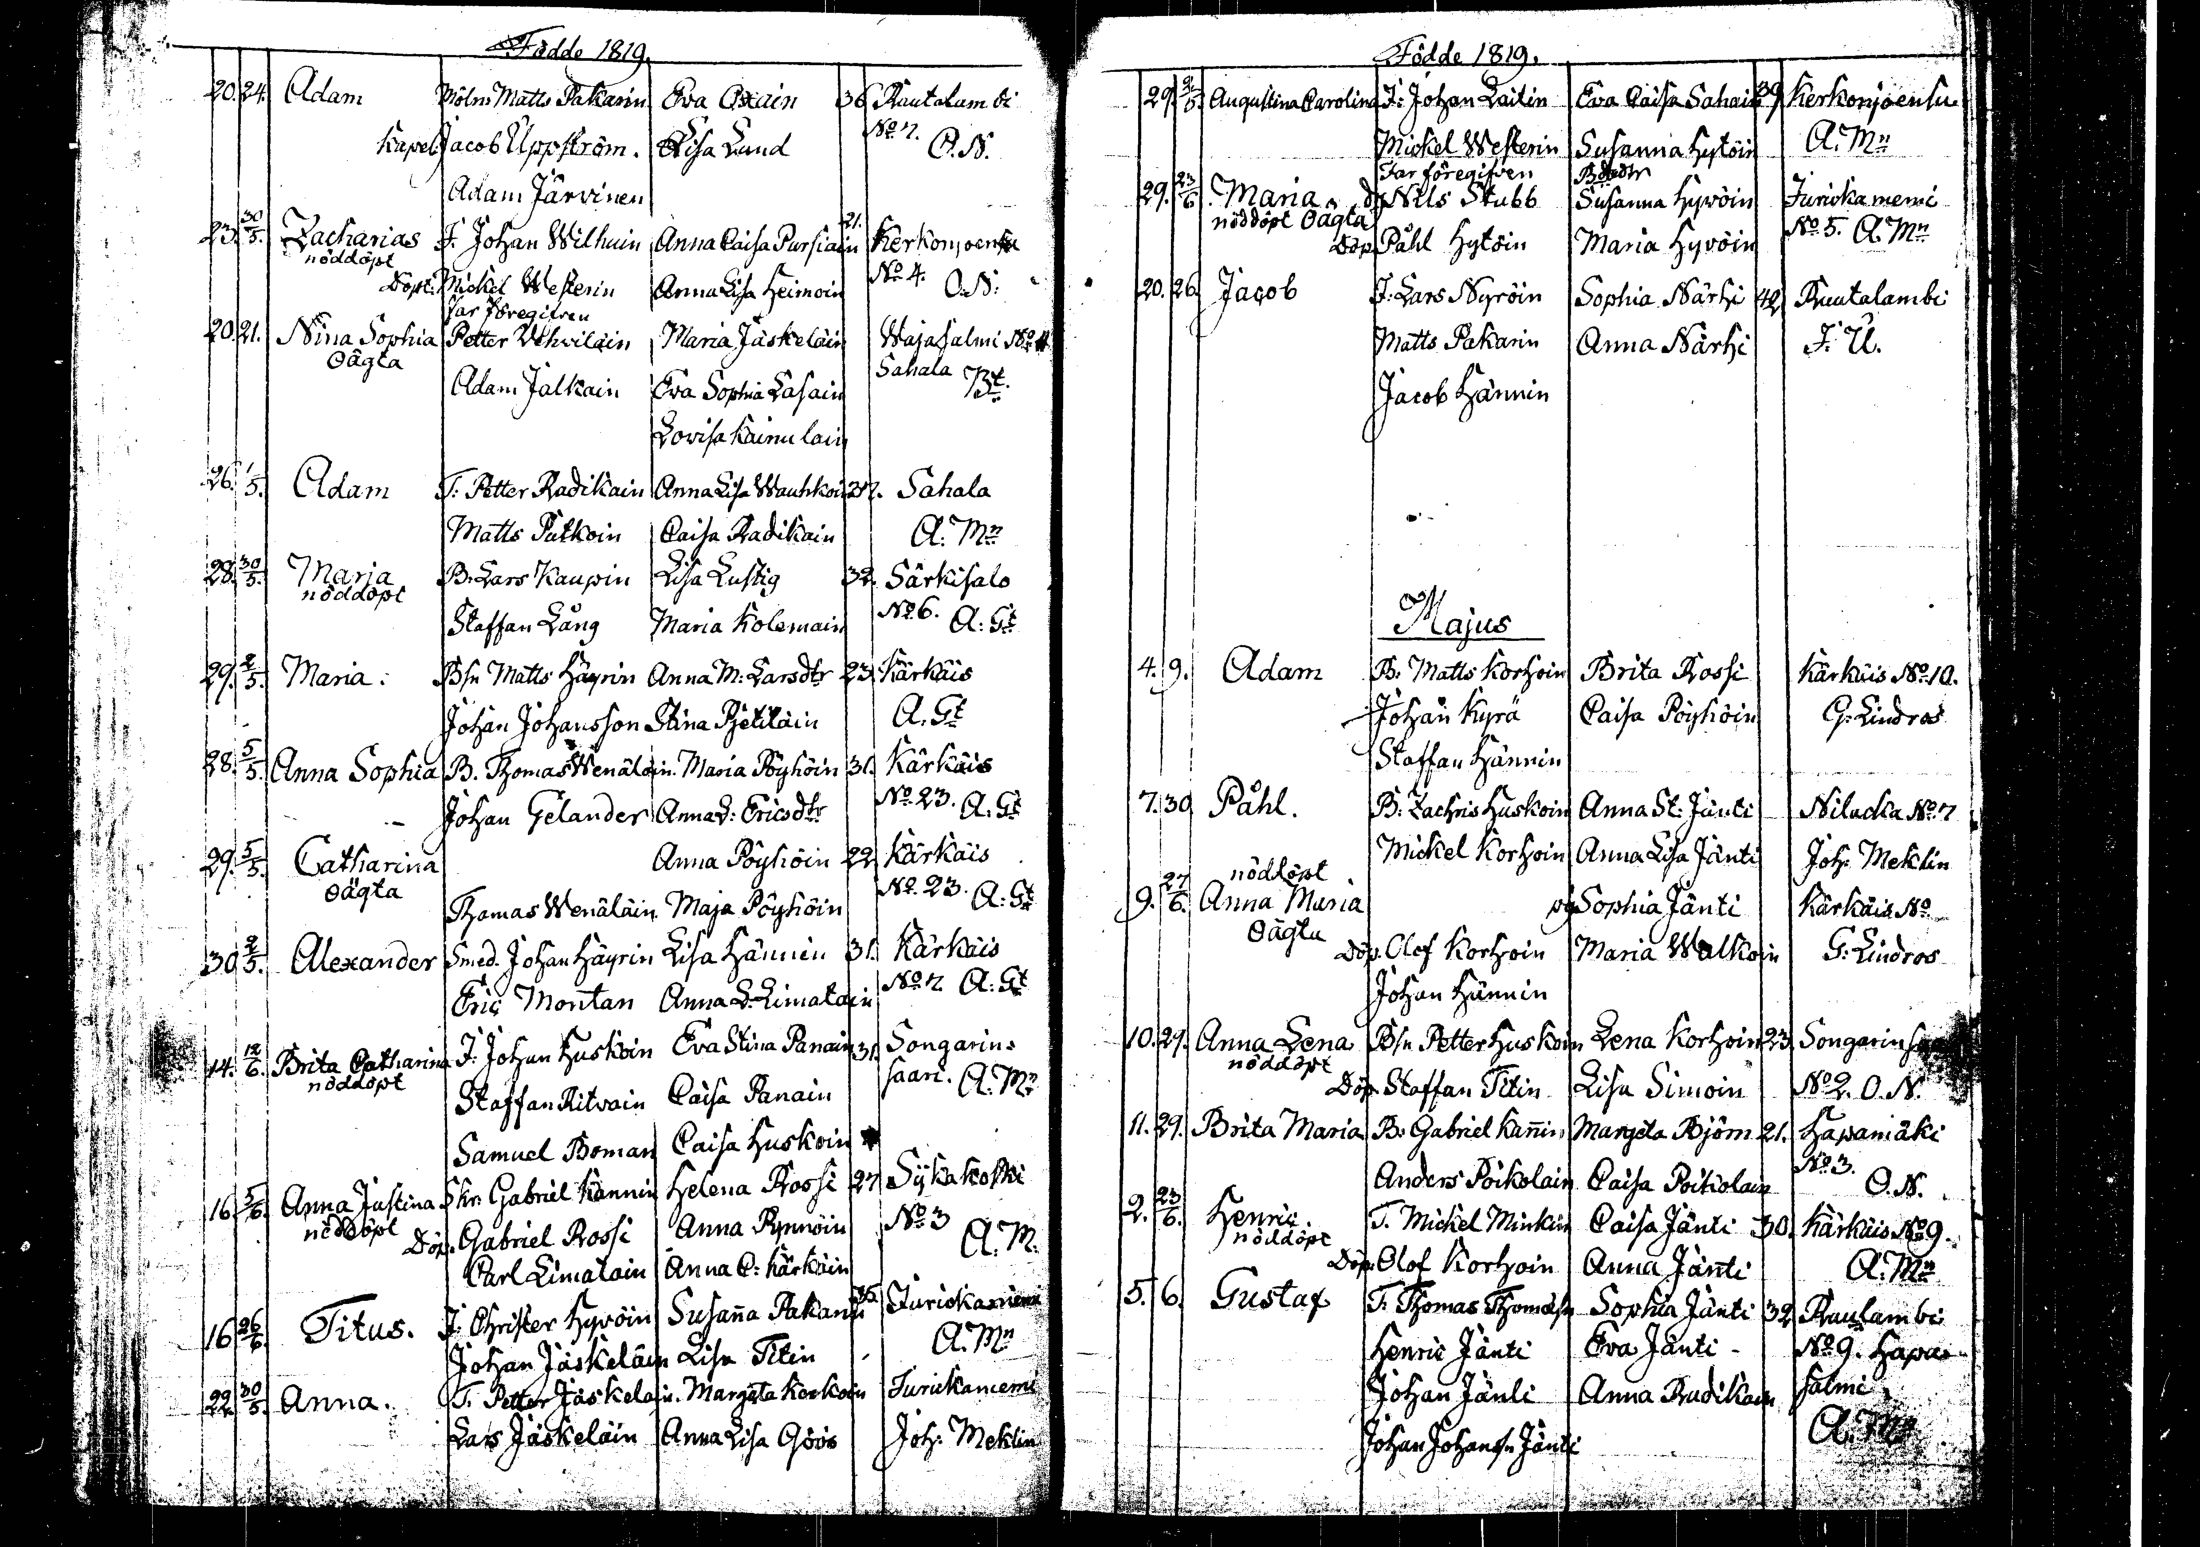 Födde 1819.
20. 24. Adam Möln: Matts Pakarin Eva Oxain 36 Rautalambi
Kapel. Jacob Uppström. Lisa Lund No 7. O.N.
Adam Järvinen
23. 30/5. Zacharias J. Johan Wilhuin Anna Caisa Pursiain 21. Kerkonjoensu
nöddöpt
Döpt: Mickel Westerin Anna Lisa Heimoin No 4. O.N.
Far föregifven
20. 21. Nina Sophia Petter Vihvilain Maria Jäskeläin Wajasalmi No 4
Oägta Sahala Bt.
Adam Jalkain Eva Sophia Lasain
Lovisa Kainulain
26. 1/5. Adam T: Petter Radikain Anna Lisa Wauhkoin 27. Sahala
Matts Putkoin Caisa Radikain A. Mn
28. 30/5. Maria B. Lars Kaupin Lisa Lustig 32. Särkisalo
nöddöpt
Staffan Lång Maria Kolemain No 6. A: Gt
29. 2/5. Maria. Bsn Matts Häyrin Anna M: Larsdtr 23. Kärkäis
Johan Johansson Stina Pjetiläin A. Gt
28. 5/5. Anna Sophia B. Thomas Wenäläin Maria Pöyhöin 31. Kärkäis
Johan Gelander Anna L: Ericsdtr No 23. A: Gt
29. 5/5. Catharina Anna Pöyhöin 22. Kärkäis
Oägta No 23. A: Gt
Thomas Wenäläin Maja Pöyhöin
30. 9/5. Alexander Smed. Johan Häyrin Lisa Hännin 31. Kärkäis
Eric Montan Anna L. Limatain No 7. A: Gt
14. 12/6. Brita Catharina J: Johan Huskoin Eva Stina Panain 31. Songarins
nöddöpt saari. A. Mn
Staffan Ritvain Caisa Panain
Samuel Boman Caisa Huskoin
16. 5/6. Anna Justina Skr. Gabriel Kännin Helena Rossi 27 Sykäkoski
nöddöpt Döp. Gabriel Rossi Anna Rynnöin No 3 A. M.
Carl Limatain Anna C: Kärkäin
16 26/6. Titus. J. Christer Hyvöin Susaña Pakarin 35. Jurickaniemi
Johan Jäskeläin Lisa Titin A. Mn
22. 30/5. Anna. T. Petter Jäskeläin. Margeta Korkoin Jurickaniemi
Lars Jäskeläin Anna Lisa Göös Joh: Meklin
Födde 1819.
29. 2/5. Augustina Carolina J: Johan Laitin Eva Caisa Sahain 39 Kerkonjoensu
Mickel Westerin Susanna Hytöin A. Mn
Far föregifven
29. 23/6. Maria Nils Stubb Susanna Hyvöin Jurickaniemi
nöddöpt Oägta
Döp. Påhl Hytöin Maria Hyvöin No 5. A. Mn
20. 26. Jacob J: Lars Nyröin Sophia Närhi 42. Rautalambi
Matts Pakarin Anna Närhi J. U.
Jacob Hännin
Majus
4. 9. Adam B. Matts Korhoin Brita Rossi Kärkäis No 10.
Johan Kyrä Caisa Pöyhöin G: Lindros
Staffan Hännin
7. 30 Påhl. B: Zachris Huskoin Anna St: Jänti Nilacka No 7
Mickel Korhoin Anna Lisa Jänti Joh: Meklin
nöddöpt
9. 27/6. Anna Maria pig Sophia Jänti Kärkäis No
Oägta
Döp. Olof Korhoin Maria Walkoin G: Lindros
Johan Hännin
10. 29. Anna Lena Bsn Petter Huskoin Lena Korhoin 23. Songarinsaa
nöddöpt
Döp. Staffan Titin Lisa Simoin No 2. O. N.
11. 29. Brita Maria B: Gabriel Kañin Margeta Björn 21. Hapamäki
Anders Poikolain Caisa Poikolain No 3. O. N.
2. 23/6. Henric T. Mickel Minkin Caisa Jänti 30. Kärkäis No 9.
nöddöpt
Döp. Olof Korhoin Anna Jänti A. Mn
5. 6. Gustaf T: Thomas Thomasn Sophia Jänti 32 Rautambi
Henric Jänti Eva Jänti No 9. Hapa
Johan Jänti Anna Radikain salmi
Johan Johansn Jänti A. Mn